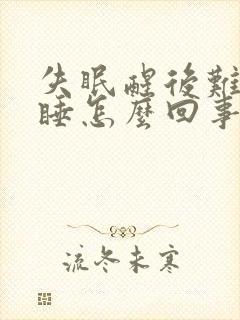 失眠醒後難
睡怎麼回事
流冬未寒